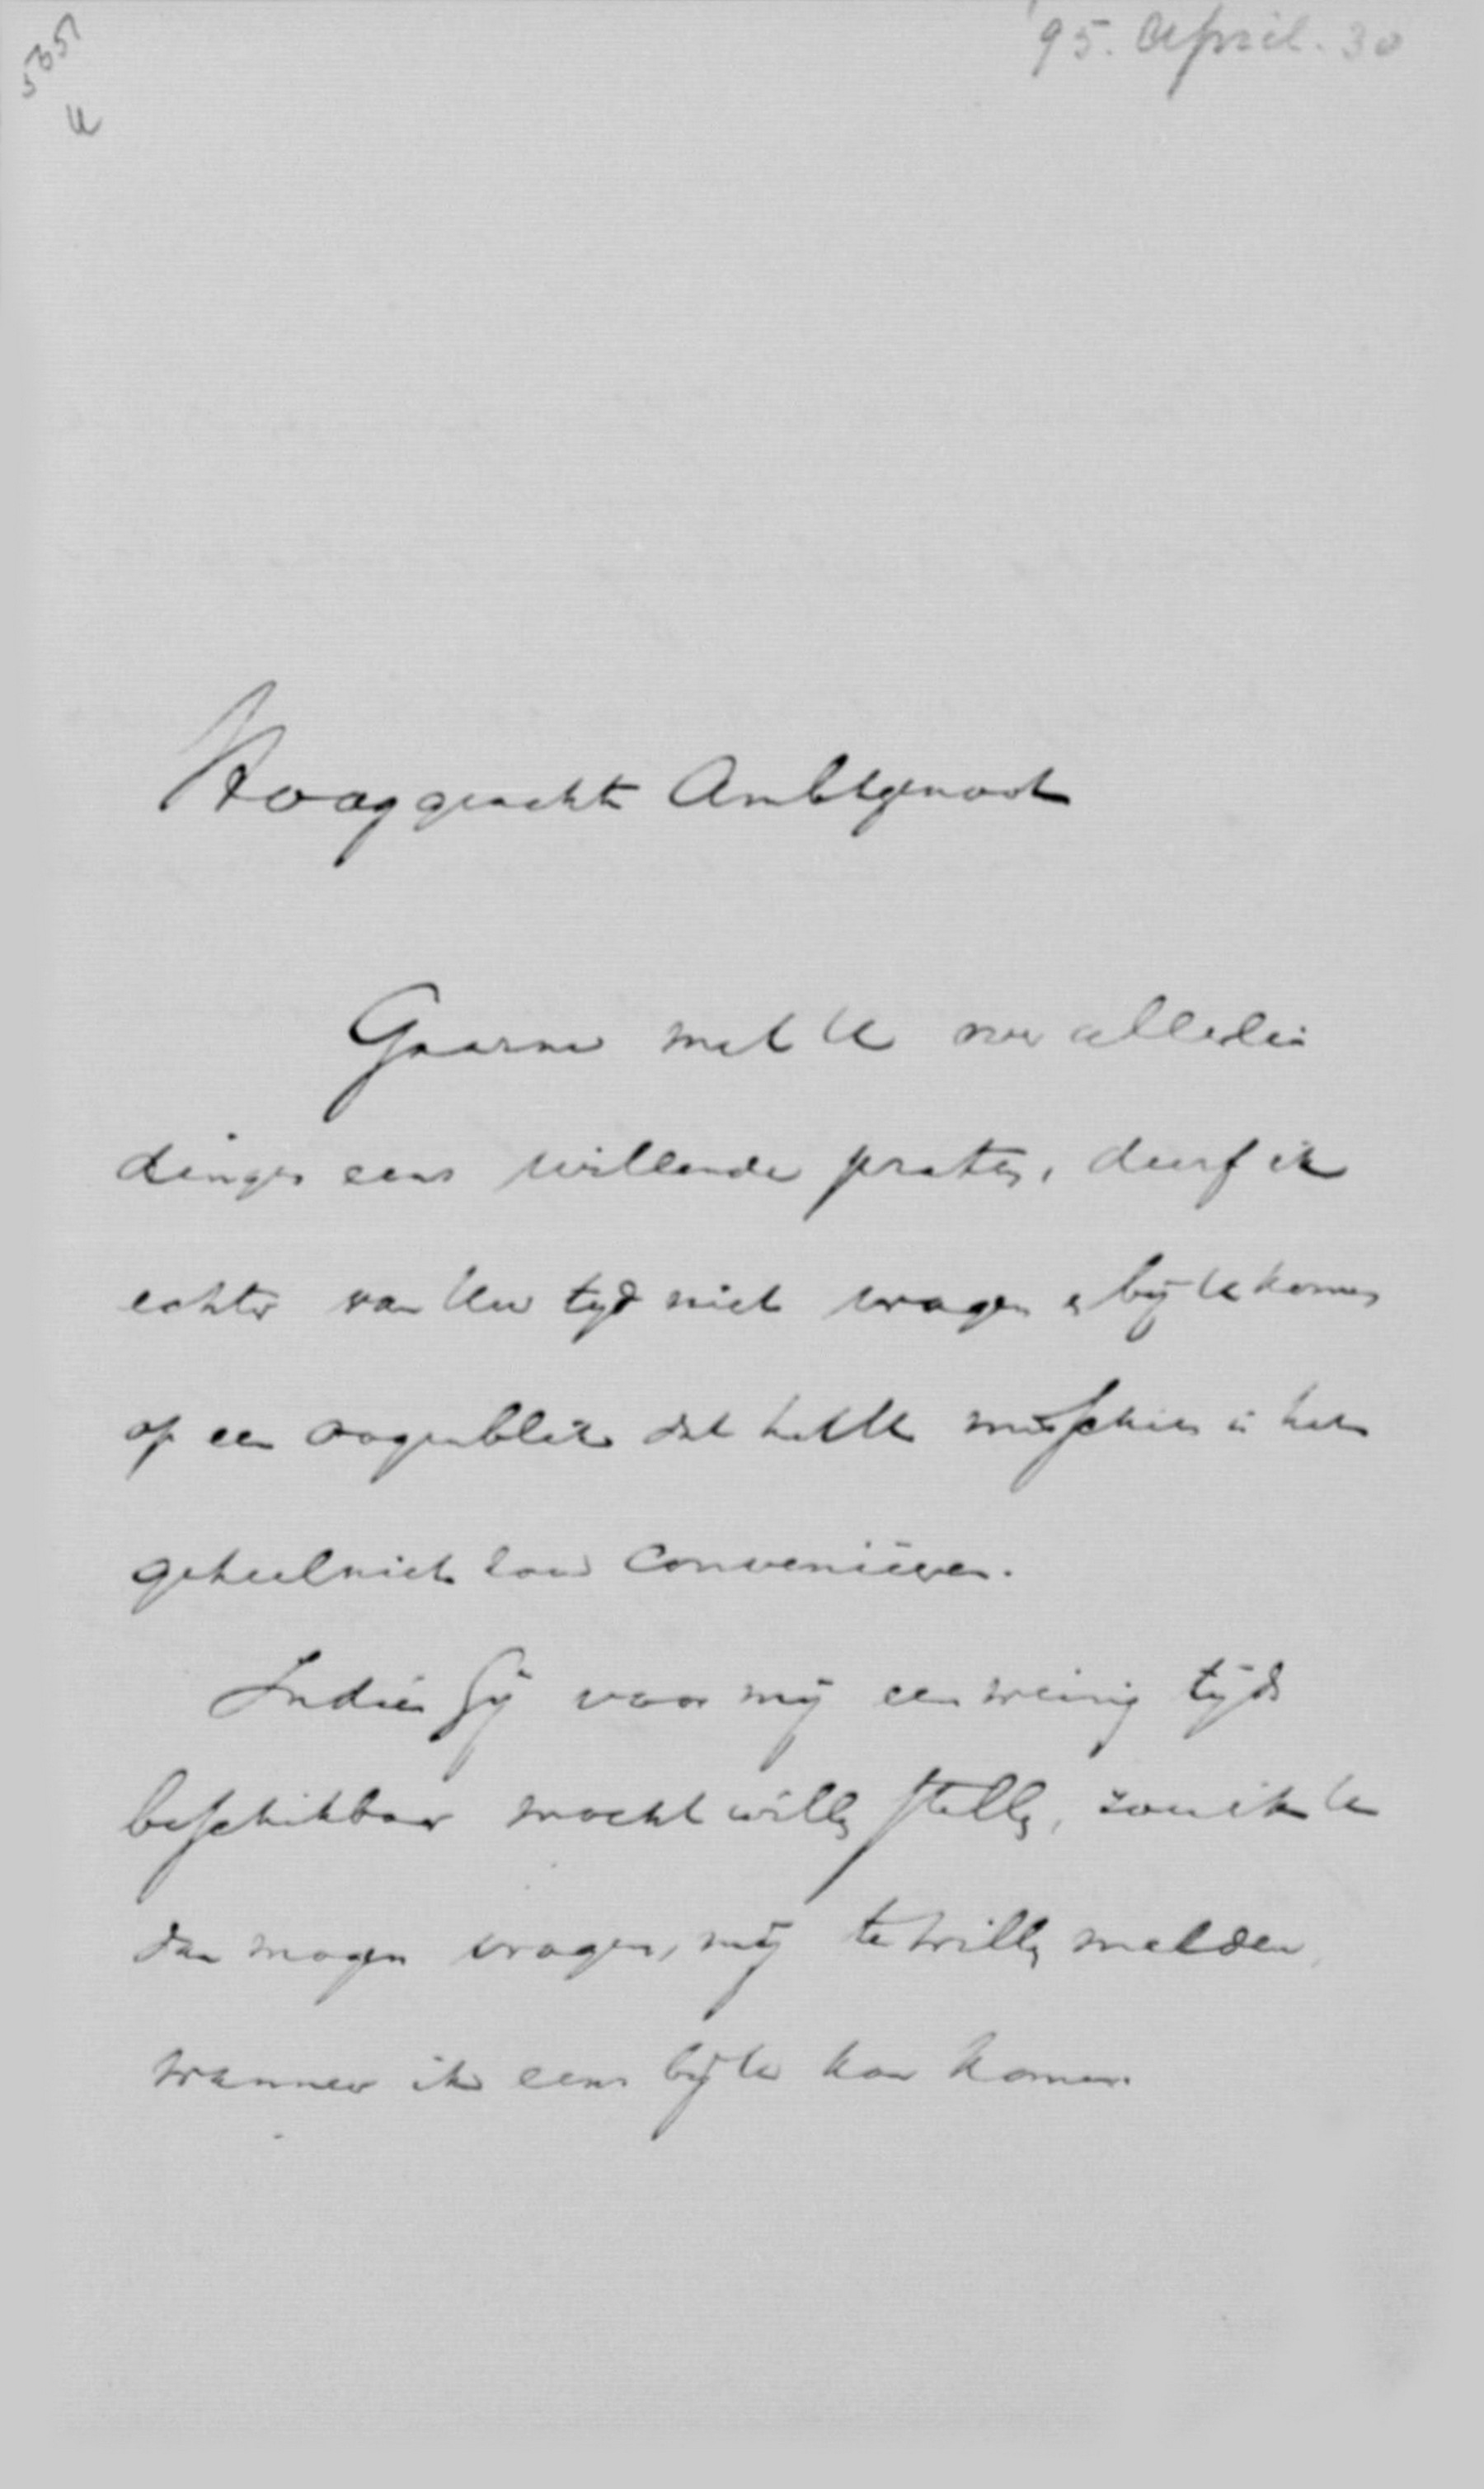 '95. April. 30
5351
U
Hooggeachte Ambtgenoot
Gaarne met U over allerlei
dingen eens willende praten, durf ik
echter van Uw tijd niet vragen en bij U komen
op een oogenblik dat het U misschien in het
geheel niet zou convenieeren.
Indien Gij voor mij een weinig tijds
beschikbaar mocht willen stellen, zou ik U
dan mogen vragen, mij te willen melden,
wanneer ik eens bij U kan komen.